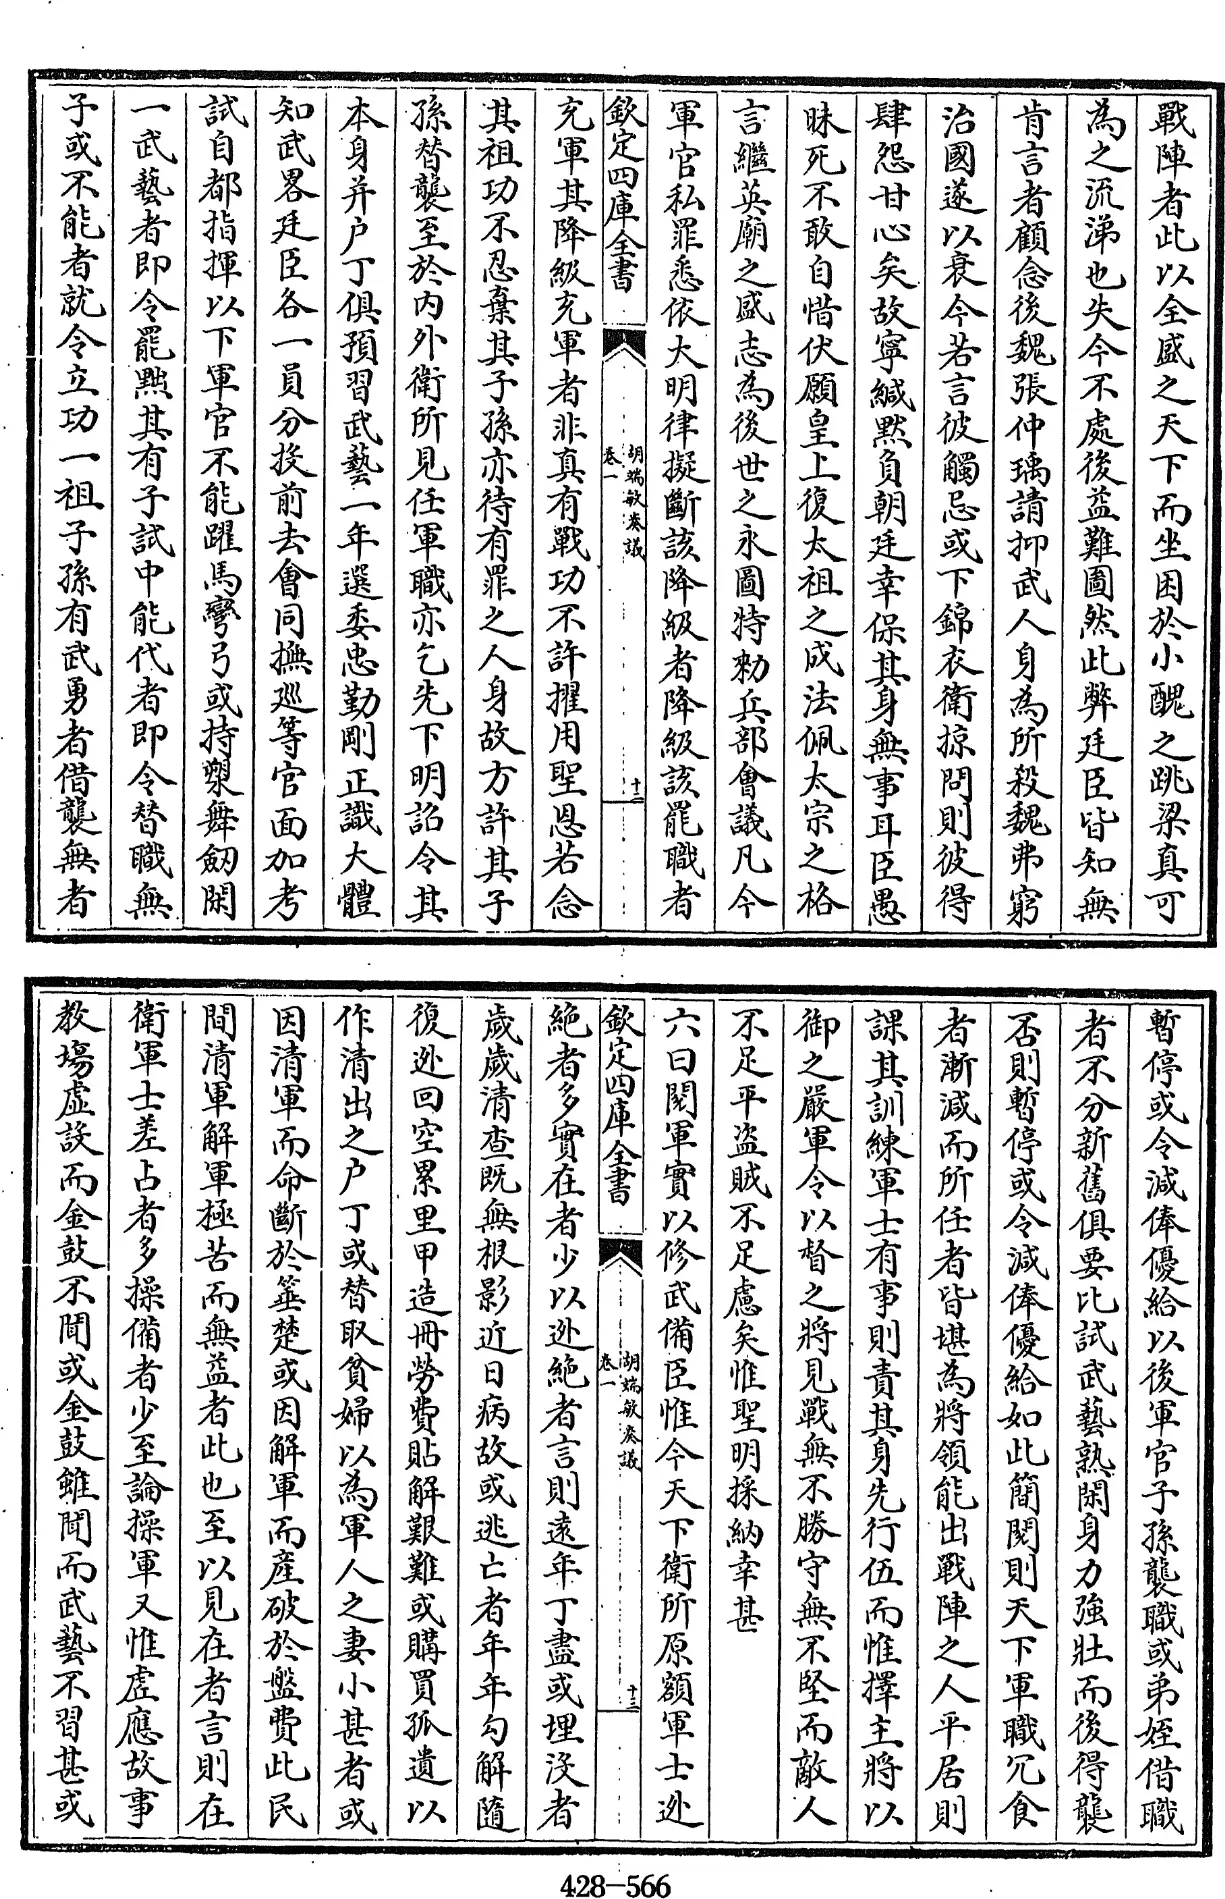 戰陣者此以全盛之天下而坐困於小醜之跳梁真可
為之流涕也失今不處後益難圖然此弊廷臣皆知無
肯言者顧念後魏張仲瑀請抑武人身為所殺魏弗窮
治國遂以衰今若言彼觸忌或下錦衣衛掠問則彼得
肆怨甘心矣故寧緘默負朝廷幸保其身無事耳臣愚
昧死不敢自惜伏願皇上復太祖之成法佩太宗之格
言繼英廟之盛志為後世之永圖特勅兵部會議凡今
軍官私罪悉依大明律擬斷該降級者降級該罷職者
欽定四庫全書
胡端敏奏議
卷一
十二
充軍其降級充軍者非真有戰功不許擢用聖恩若念
其祖功不忍棄其子孫亦待有罪之人身故方許其子
孫替襲至於內外衛所見任軍職亦乞先下明詔令其
本身并户丁俱預習武藝一年選委忠勤剛正識大體
知武畧廷臣各一員分投前去會同撫廵等官面加考
試自都指揮以下軍官不能躍馬彎弓或持槊舞劒閑
一武藝者即令罷黜其有子試中能代者即令替職無
子或不能者就令立功一祖子孫有武勇者借襲無者
暫停或令減俸優給以後軍官子孫襲職或弟姪借職
者不分新舊俱要比試武藝熟閑身力強壯而後得襲
否則暫停或令減俸優給如此簡閱則天下軍職冗食
者漸減而所任者皆堪為將領能出戰陣之人平居則
課其訓練軍士有事則責其身先行伍而惟擇主將以
御之嚴軍令以督之將見戰無不勝守無不堅而敵人
不足平盗賊不足慮矣惟聖明採納幸甚
六曰閱軍實以修武備臣惟今天下衛所原額軍士迯
欽定四庫全書
胡端敏奏議
卷一
十三
絶者多實在者少以迯絶者言則逺年丁盡或埋沒者
歲歲清查既無根影近日病故或逃亡者年年勾解隨
復迯回空累里甲造冊勞費貼解艱難或購買孤遺以
作清出之户丁或替取貧婦以為軍人之妻小甚者或
因清軍而命斷於箠楚或因解軍而產破於盤費此民
間清軍解軍極苦而無益者此也至以見在者言則在
衛軍士差占者多操備者少至論操軍又惟虛應故事
教場虛設而金鼓不聞或金鼓雖聞而武藝不習甚或
428-566